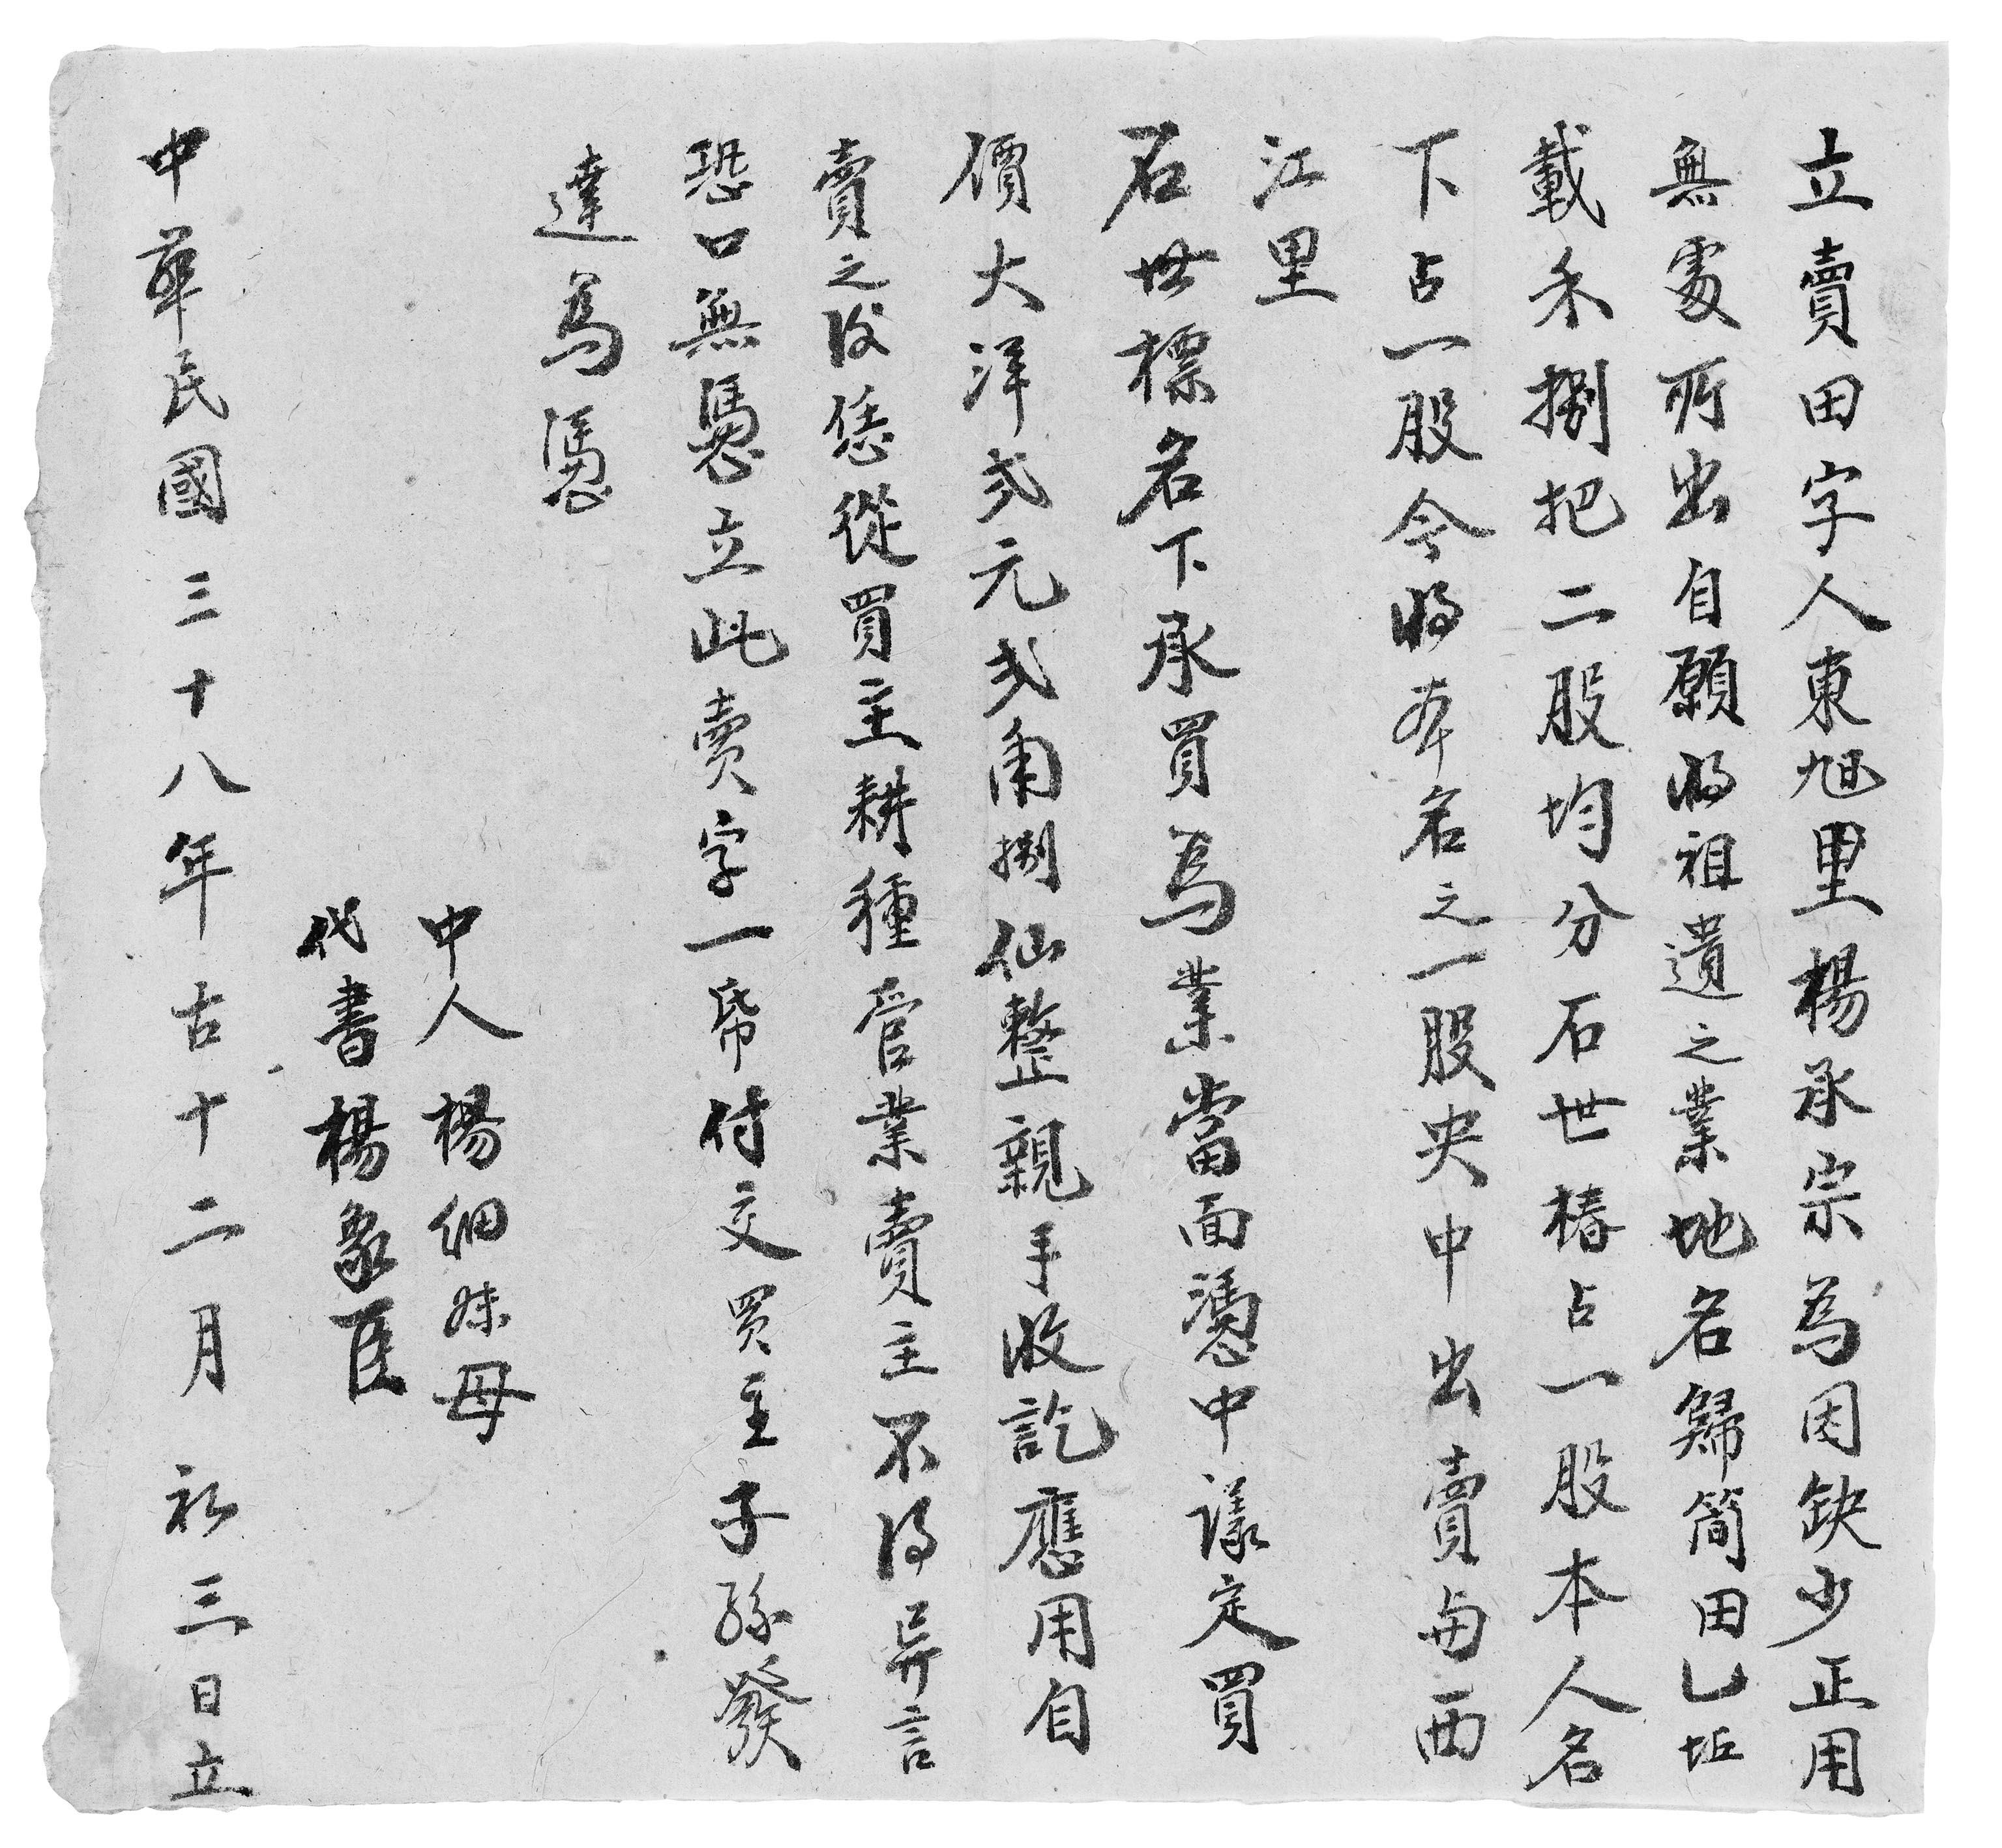 立賣田字人東旭里楊承宗為因缺少正用
無處所出自願將祖遺之業地名歸简田乙坵
載禾捌把二股均分石世椿占一股本人名
下占一股今将本名之一股央中出賣與西
江里
石世標名下承買為業當面憑中議定買
價大洋弍元弍角捌仙整親手收訖應用自
賣之後恁從買主耕種管業賣主不得异言
恐口無憑立此賣字一帋付交買主子孫發
達為憑
中人楊細妹母
代書楊象臣
中華民國三十八年古十二月初三日立